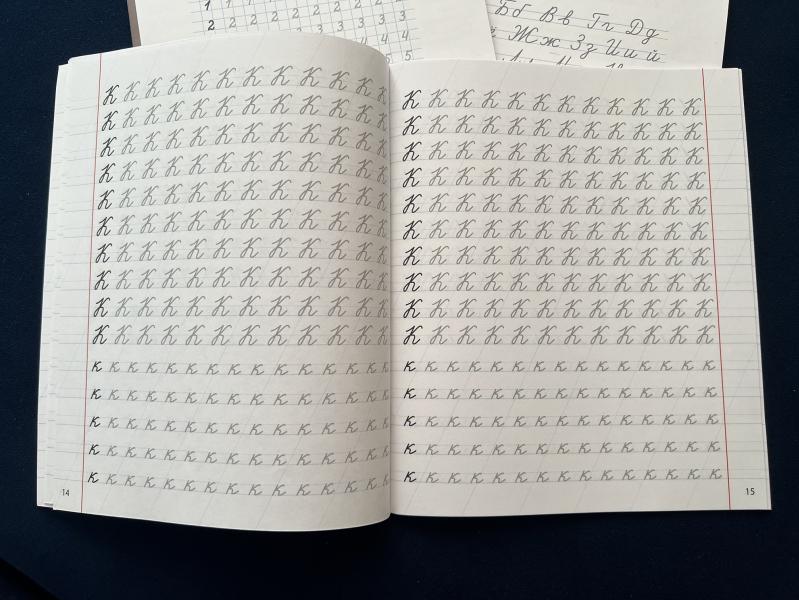 1 1 1 1
2 2 2 2 2 2 2 2 2 2
3 3 3
4 4
5 5
Бб Вв Гг Дд
Жж Зз Ии й
К К К К К К К К К К К К
К К К К К К К К К К К К
К К К К К К К К К К К К
К К К К К К К К К К К К
К К К К К К К К К К К К
К К К К К К К К К К К К
К К К К К К К К К К К К
К К К К К К К К К К К К
К К К К К К К К К К К К
К К К К К К К К К К К К
к к к к к к к к к к к к к к к
к к к к к к к к к к к к к к к
к к к к к к к к к к к к к к к
к к к к к к к к к к к к к к к
к к к к к к к к к к к к к к к
14
К К К К К К К К К К К К
К К К К К К К К К К К К
К К К К К К К К К К К К
К К К К К К К К К К К К
К К К К К К К К К К К К
К К К К К К К К К К К К
К К К К К К К К К К К К
К К К К К К К К К К К К
К К К К К К К К К К К К
К К К К К К К К К К К К
к к к к к к к к к к к к к к к
к к к к к к к к к к к к к к к
к к к к к к к к к к к к к к к
к к к к к к к к к к к к к к к
к к к к к к к к к к к к к к к
15